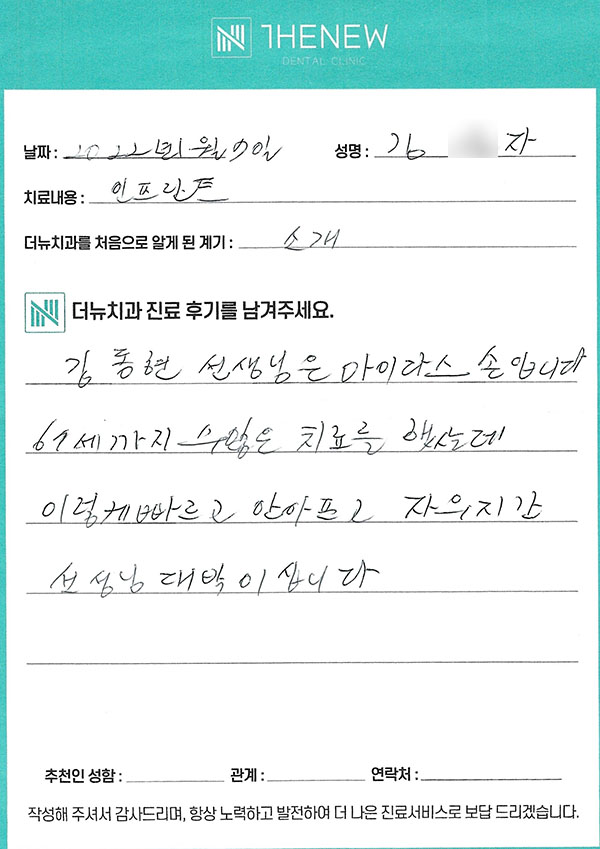 THENEW
DENTAL CLINIC
날짜 : 2022년 1월 일 성명 : 김 자
치료내용 : 인프란트
더뉴치과를 처음으로 알게 된 계기 : 소개
더뉴치과 진료 후기를 남겨주세요.
김동현 선생님은 마이다스 손입니다
67세까지 수많은 치료를 했는데
이렇케빠르고 안아프고
선성님 대박이십니다
추천인 성함 : 관계 : 연락처 :
작성해 주셔서 감사드리며, 항상 노력하고 발전하여 더 나은 진료서비스로 보답 드리겠습니다.